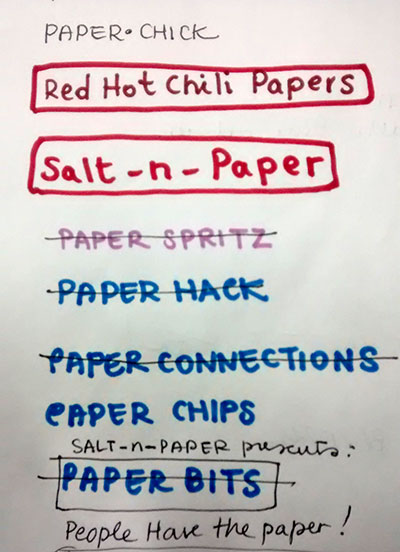 PAPER•CHICK
Red Hot Chili Papers
Salt-n-Paper
PAPER SPRITZ
PAPER HACK
PAPER CONNECTIONS
PAPER CHIPS
SALT-n-PAPER presents:
PAPER BITS
People Have the paper!